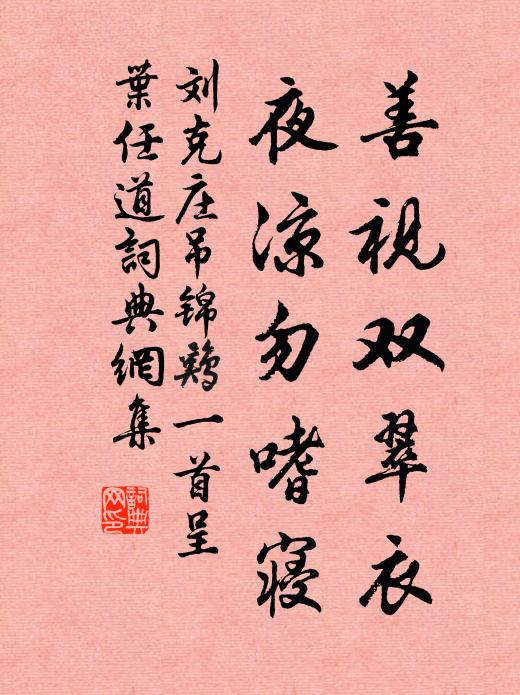 善视双翠衣
夜凉勿嗜寝
刘克庄吊锦鸡一首呈
葉任道詞典網集
詞典
网印